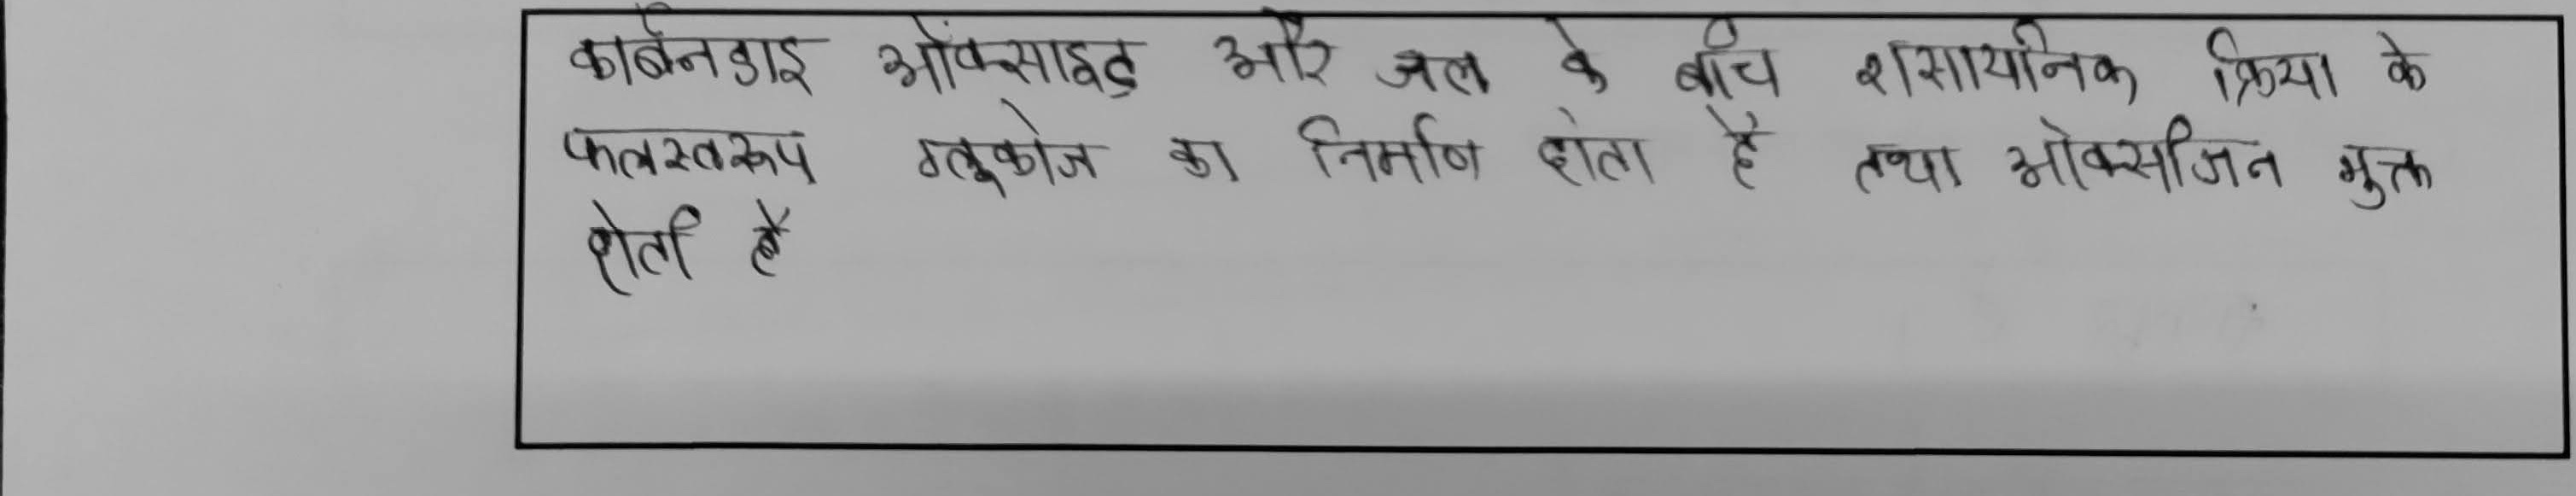 कार्बनडाइ ऑक्साइड और जल के बीच रासायनिक क्रिया के
फलस्वरूप ग्लूकोज का निर्माण होता है तथा ऑक्सीजन मुक्त
होती है